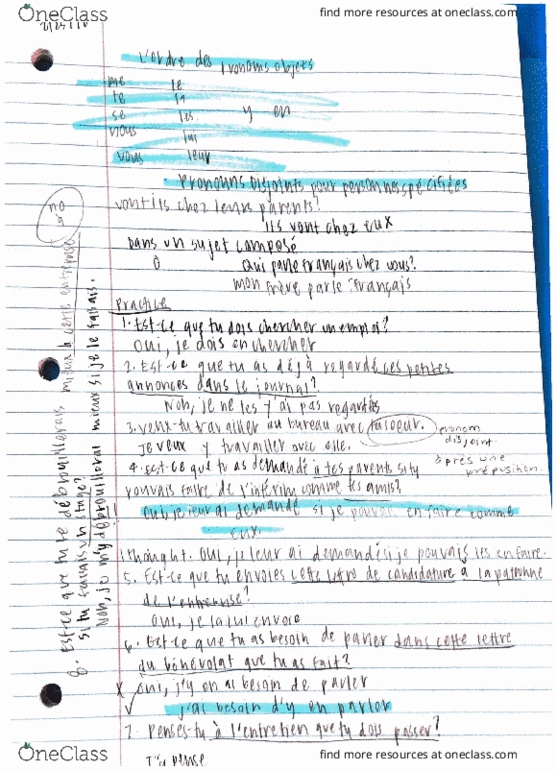 OneClass
find more resources at oneclass.com
L'ordre des pronoms objets
me le
te la
se les y en
nous lui
vous leur
Pronouns disjoints pour personnes spécifiées
vont-ils chez leurs parents?
ils vont chez eux
Dans un sujet composé
Qui parle français chez vous?
mon frère parle français
Practice
1. Est-ce que tu dois chercher un emploi?
Oui, je dois en chercher
2. Est-ce que tu as déjà regardé ces petites
annonces dans le journal?
Non, je ne les y ai pas regardés
3. veux-tu travailler au bureau avec ta soeur.
pronom
disjoint
Je veux y travailler avec elle.
après une
préposition.
4. Est-ce que tu as demandé à tes parents si tu
pouvais faire de l'intérim comme tes amis?
Oui, je leur ai demandé si je pouvais en faire comme
eux.
I thought. Oui, je leur ai demandé si je pouvais les en faire.
5. Est-ce que tu envoies cette lettre de candidature à la patronne
de l'entreprise?
Oui, je la lui envoie
6. Est-ce que tu as besoin de parler dans cette lettre
du bénévolat que tu as fait?
X Oui, j'y en ai besoin de parler
✓ j'ai besoin d'y en parler
7. Penses-tu à l'entretien que tu dois passer?
8. Est-ce que tu te débrouillerais mieux à cette entreprise
si tu faisais un stage?
Non, je m'y débrouillerai mieux si je le faisais.
OneClass
find more resources at oneclass.com